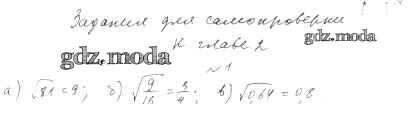 Задания для самопроверки
gdz.moda
к главе 2
gdz.moda
№1
а) √81 = 9; б) √9/16 = 3/4; в) √0,64 = 0,8.